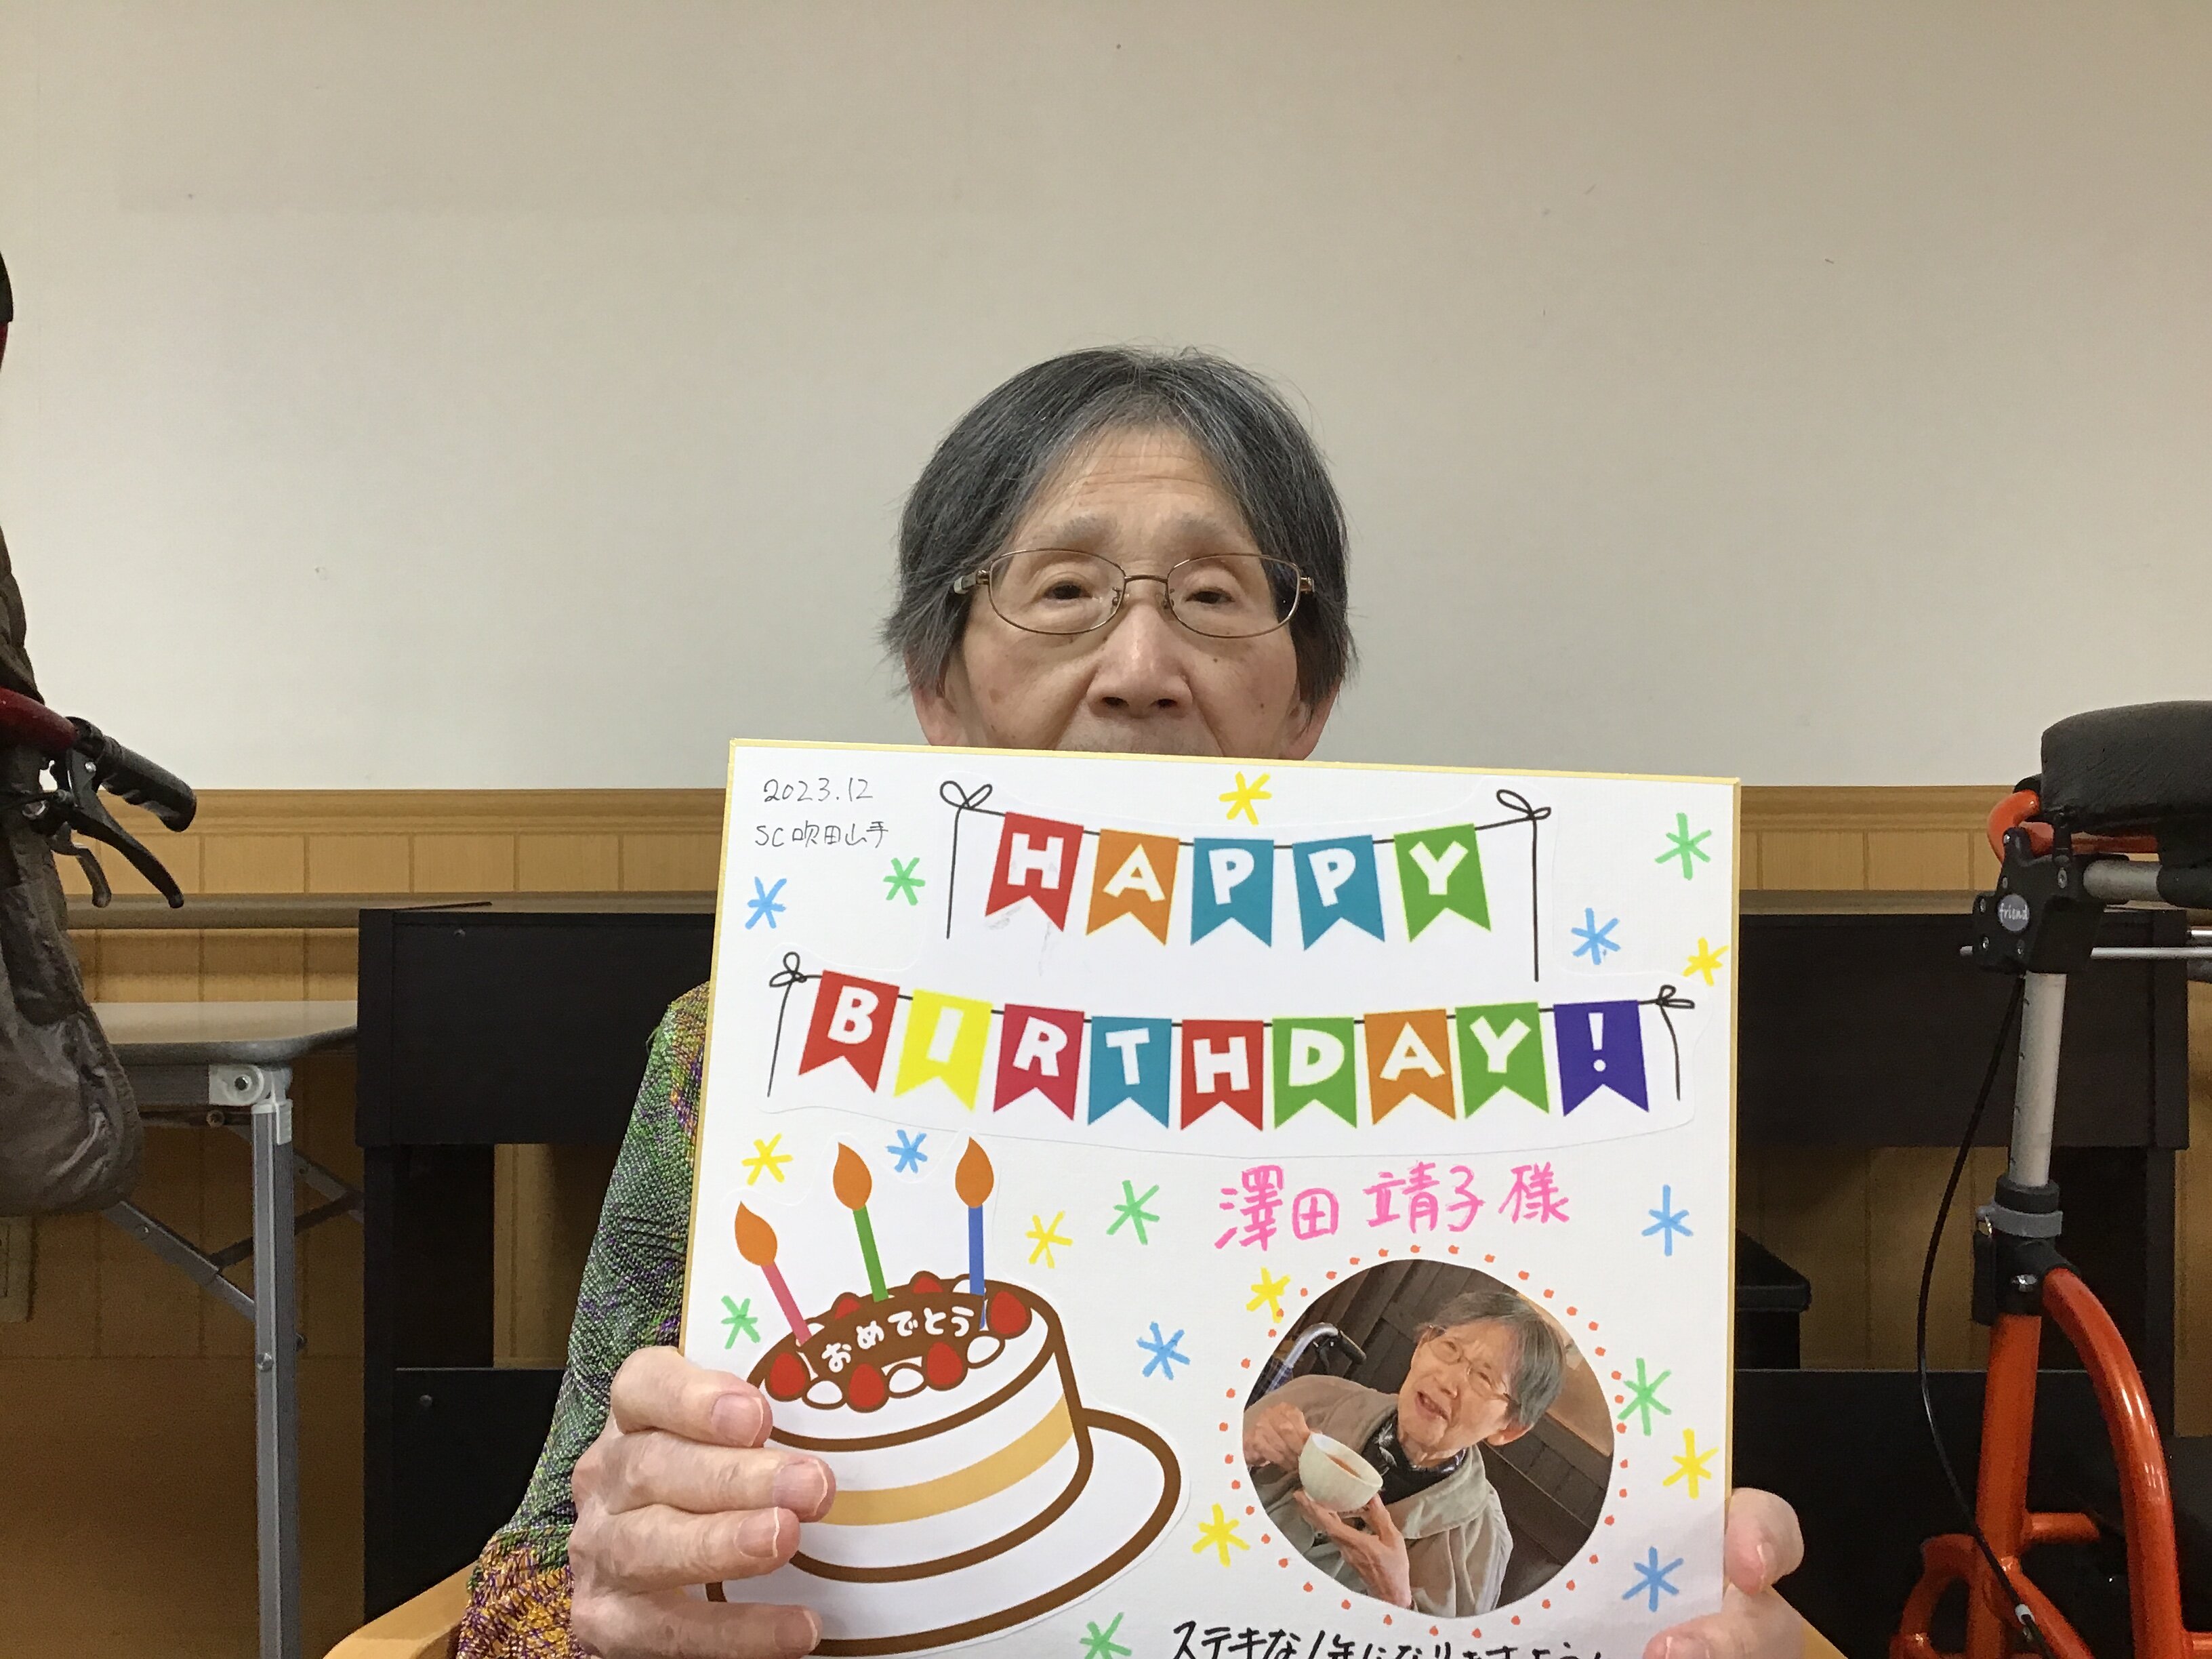 2023.12
SC 吹田山手
HAPPY
BIRTHDAY!
澤田 靖子 様
おめでとう
ステキな1年になりますように
friend